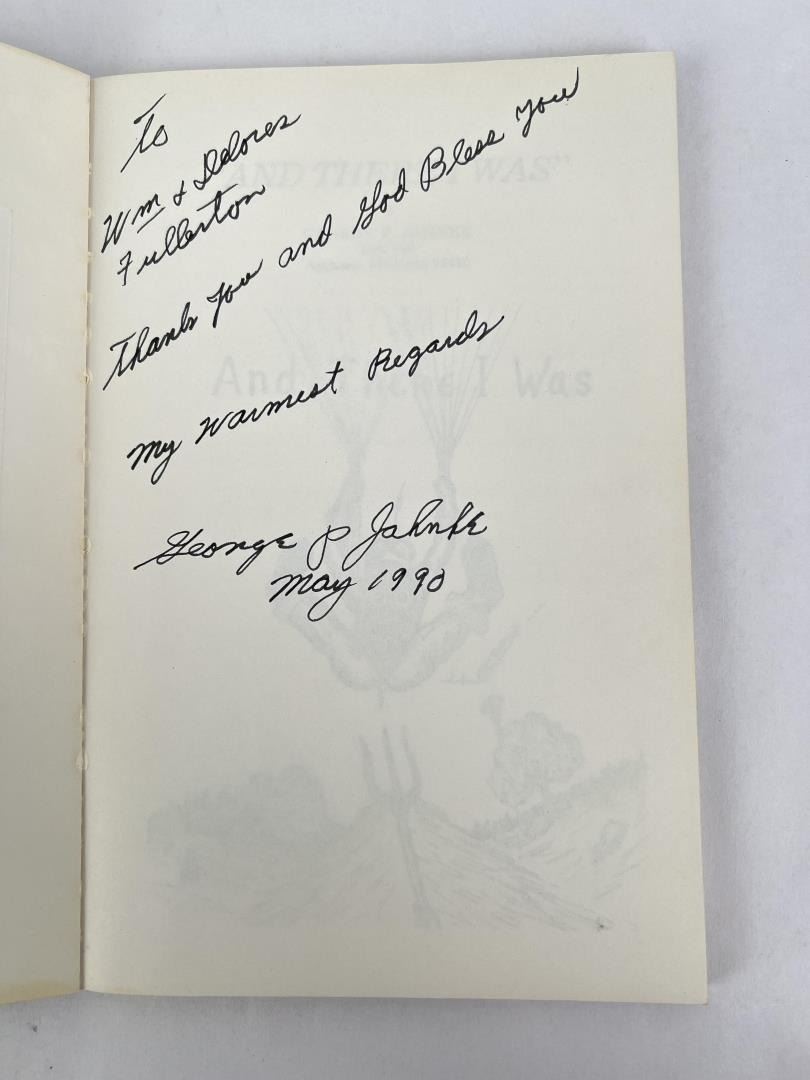 To
Wm & Delores
Fullerton
Thank you and God Bless You
My Warmest Regards
George P Jahnke
May 1990
"AND THERE I WAS"
And There I Was